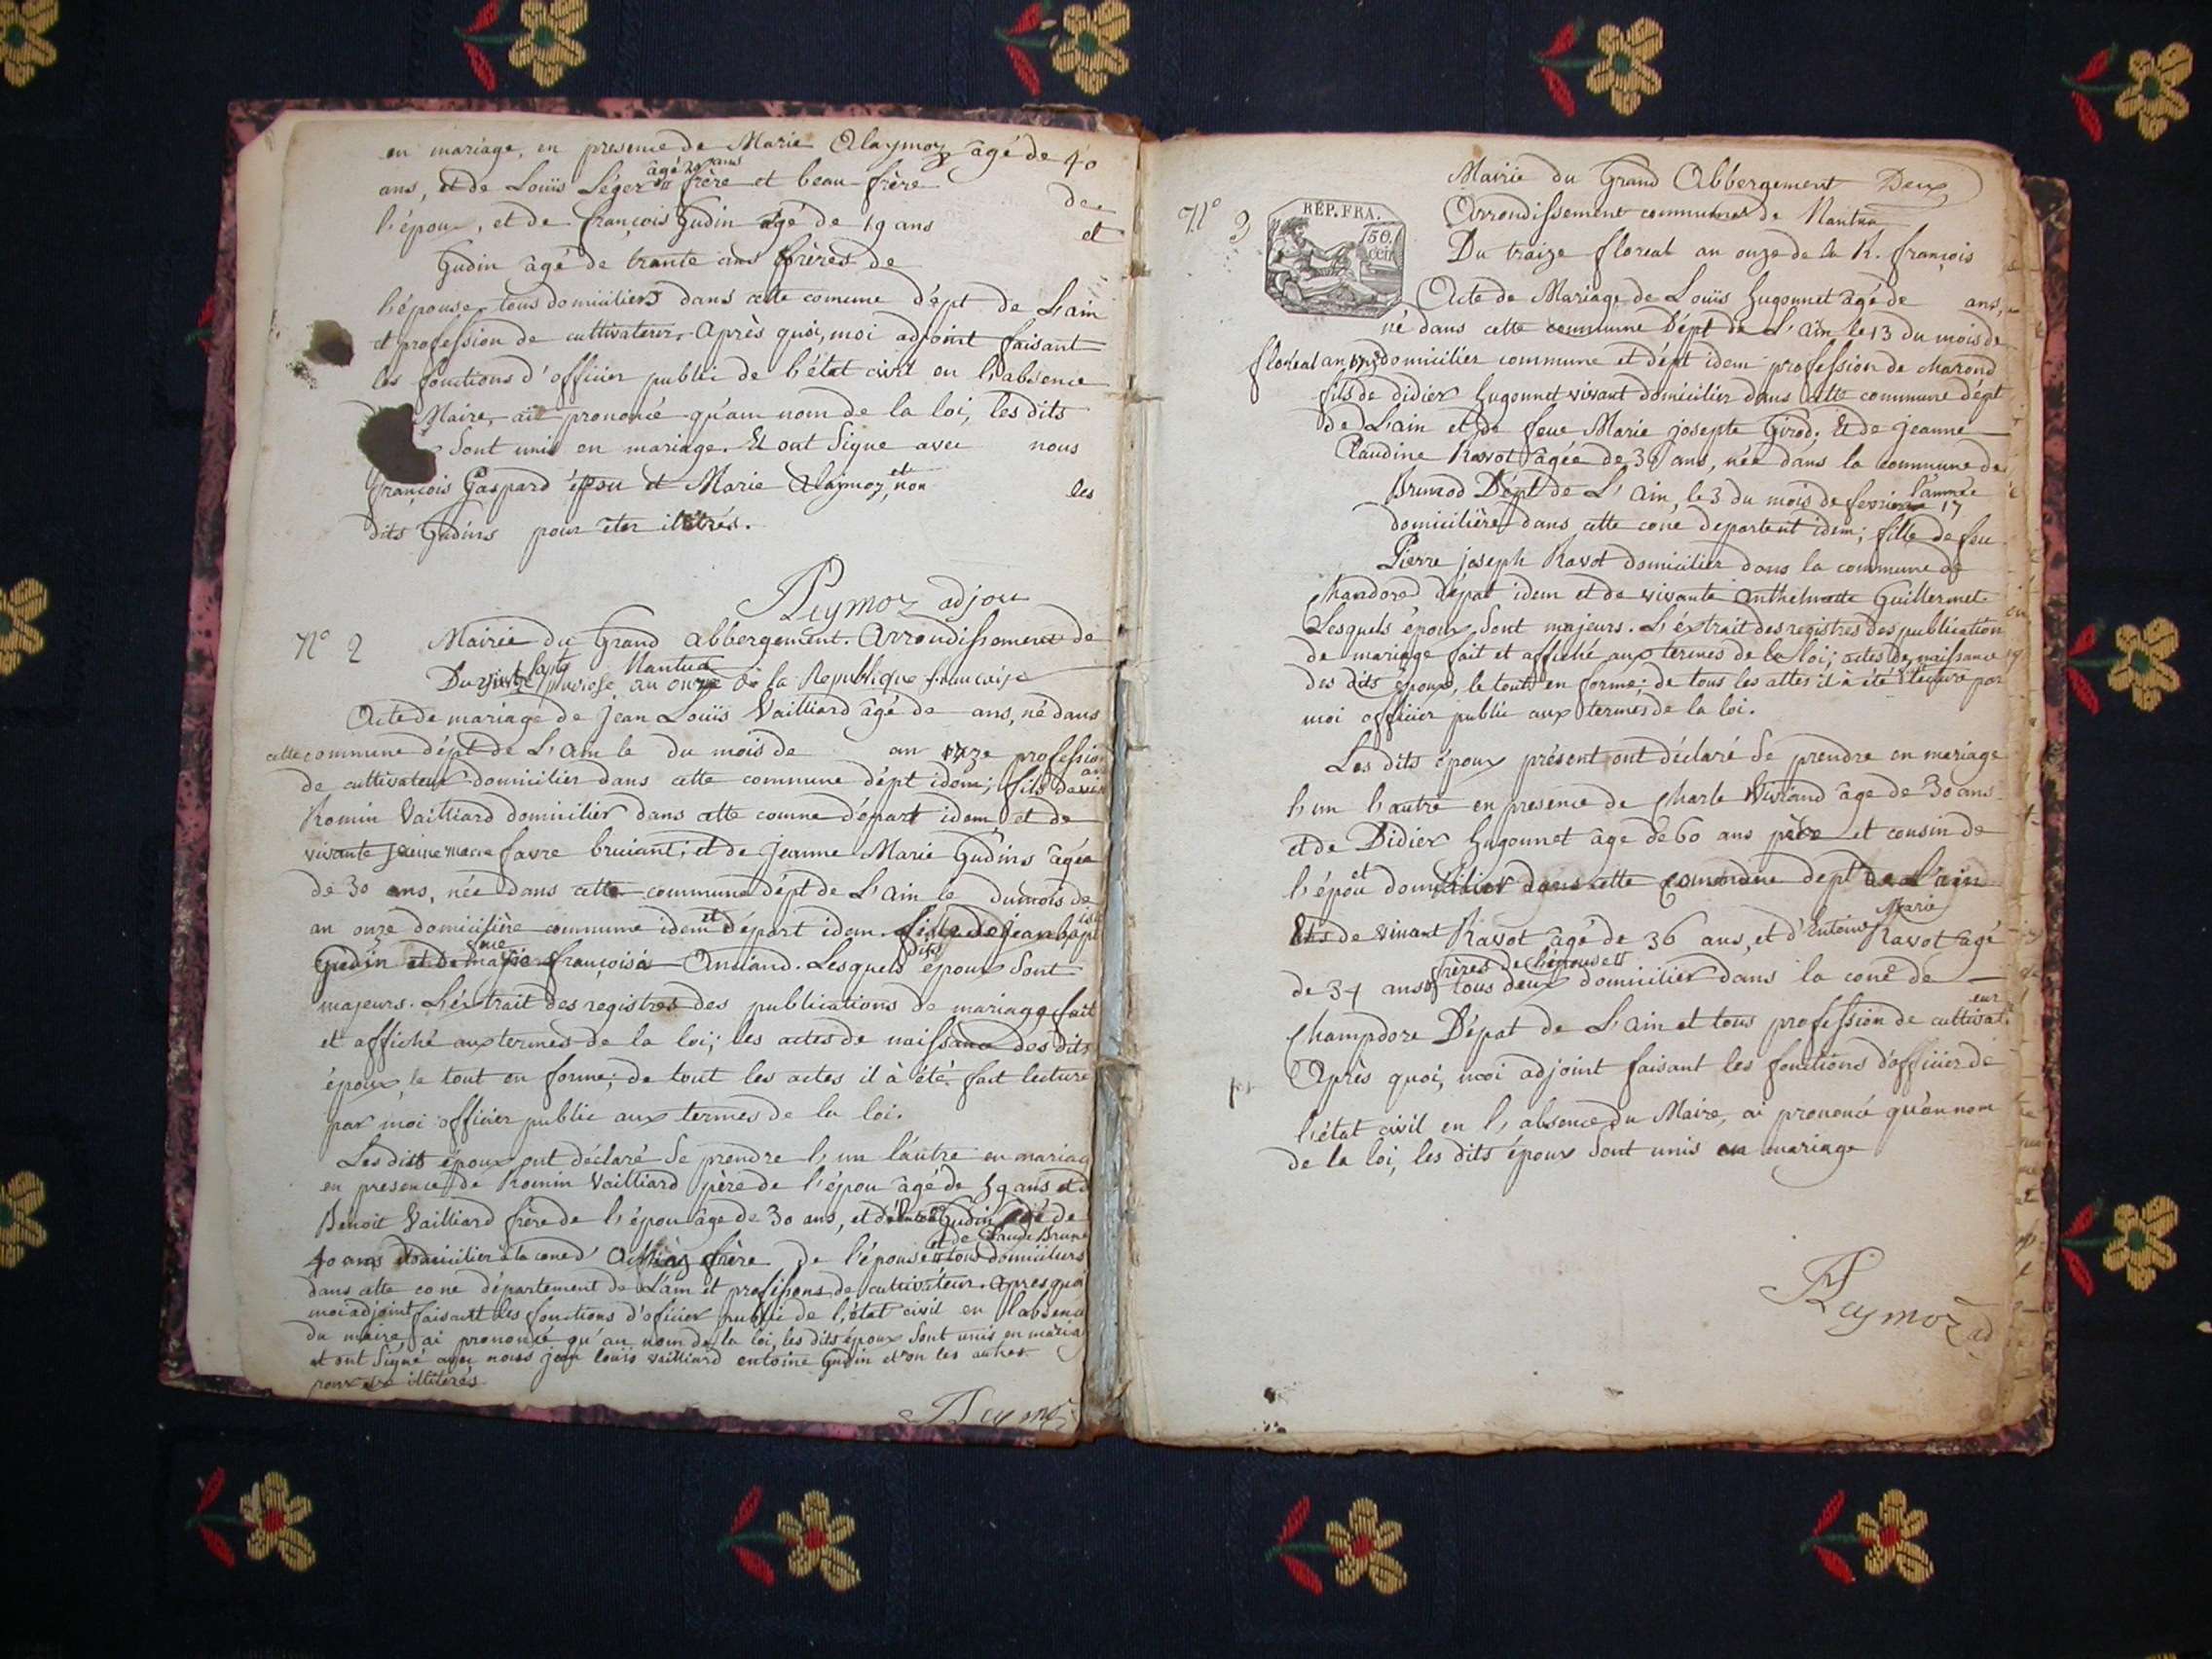 en mariage, en presence de Marie Alaymoz agé de 40
âgé ans
ans, et de Louis Léger frère et beau-frère de
l'époux, et de françois Gudin agé de 19 ans et
Gudin âgé de trante ans frères de
l'épouse, tous domiciliers dans cette comune dépt de L'ain
et profession de cultivaterer. Après quoi, moi adjoint faisant
les fonctions d'officier public de l'état civil en l'absence
Maire, ait prononcé qu'au nom de la loi, les dits
sont unis en mariage. Et ont signe avec nous
françois Gaspard épou et Marie Alaymoz, et non les
dits Gudins pour eter iletrés.
Reymoz adjou
N° 2 Mairie du Grand abbergement. Arrondissement de
Nantua
Du pluviose an onze de la Republique francaise
Acte de mariage de Jean Louis Vailliard âgé de ans, né dans
cette commune dépt de L'ain le du mois de an onze profession
de cultivateur domicilier dans cette commune dépt idem; fils
Romin Vailliard domicilier dans cette comne départ idem et de
vivante jeune marie favre bruiant; et de Jeanne Marie Gudins agée
de 30 ans, née dans cette commune dépt de L'ain le du mois de
an onze domicilière commune idem et départ idem. fille de jean bapt
Gudin et de marie françoise Amiand. Lesquels dits époux sont
majeurs. L'éxtrait des registres des publications de mariage fait
et affiché aux termes de la loi; les actes de naissance des dits
époux, le tout en forme; de tout les actes il à été fait lecture
par moi officier public aux termes de la loi.
Les dits époux ont déclaré se prendre l'un l'autre en mariag
en presence de Romin Vailliard père de l'épou âgé de 59 ans et
Benoit Vailliard frère de l'épou âge de 30 ans, et Gudin agé de
et de Claude Brun
40 ans domicilier a la cone d' frère de l'épouse tous domiciliers
dans cette cone département de L'ain et professions de cultivateur. Apres quoi
moi adjoint faisant les fonctions d'oficier public de l'état civil en l'absence
du maire, ai prononcé qu'au nom de la loi, les dits époux sont unis en maria
et ont signé avec nous jean louis vailliard entoine Gudin et non les autres
pour illitérés
Reymoz
N° 3
REP. FRA.
50
cen
Mairie du Grand Abbergement Deux
Arrondissement communal de Nantua
Du traize floreal an onze de la R. françois
Acte de Mariage de Louis Hugonnet âgé de ans,
né dans cette commune Dépt de L'ain le 13 du mois de
floréal an domicilier commune et dépt idem profession de charond
fils de didier Hugonnet vivant domicilier dans cette commune dépt
de L'ain et de feue Marie josepte Girod. Et de jeanne
Claudine Ravot âgée de 30 ans, née dans la commune de
Brenod Dépt de L'ain, le 3 du mois de fevrier l'année 17
domicilière dans cette cone departent idem; fille de feu
Pierre joseph Ravot domicilier dans la commune de
Chandore départ idem et de vivante Anthelmette Guillermet
Lesquels époux sont majeurs. L'éxtrait des registres des publication
de mariage fait et affiché aux termes de la loi; actes de naissance
des dits époux, le tout en forme; de tous les actes il a été fait lecture par
moi officier public aux termes de la loi.
Les dits époux présent ont déclaré se prendre en mariage
l'un l'autre en presence de Charle Vivrand age de 30 ans
et de Didier Hugonnet âge de 60 ans père et cousin de
l'épou et domicilier dans cette commune dept de L'ain
Marie
de vinant Ravot âgé de 36 ans, et d'Entoine Ravot agé
frères de l'épouse
de 34 ans tous deux domicilier dans la cone de
Champdore Dépat de L'ain et tous profession de cultivateur
Après quoi, moi adjoint faisant les fonctions d'officier de
l'état civil en l'absence du Maire, ai prononcé qu'au nom
de la loi, les dits époux sont unis en mariage
Reymoz ad